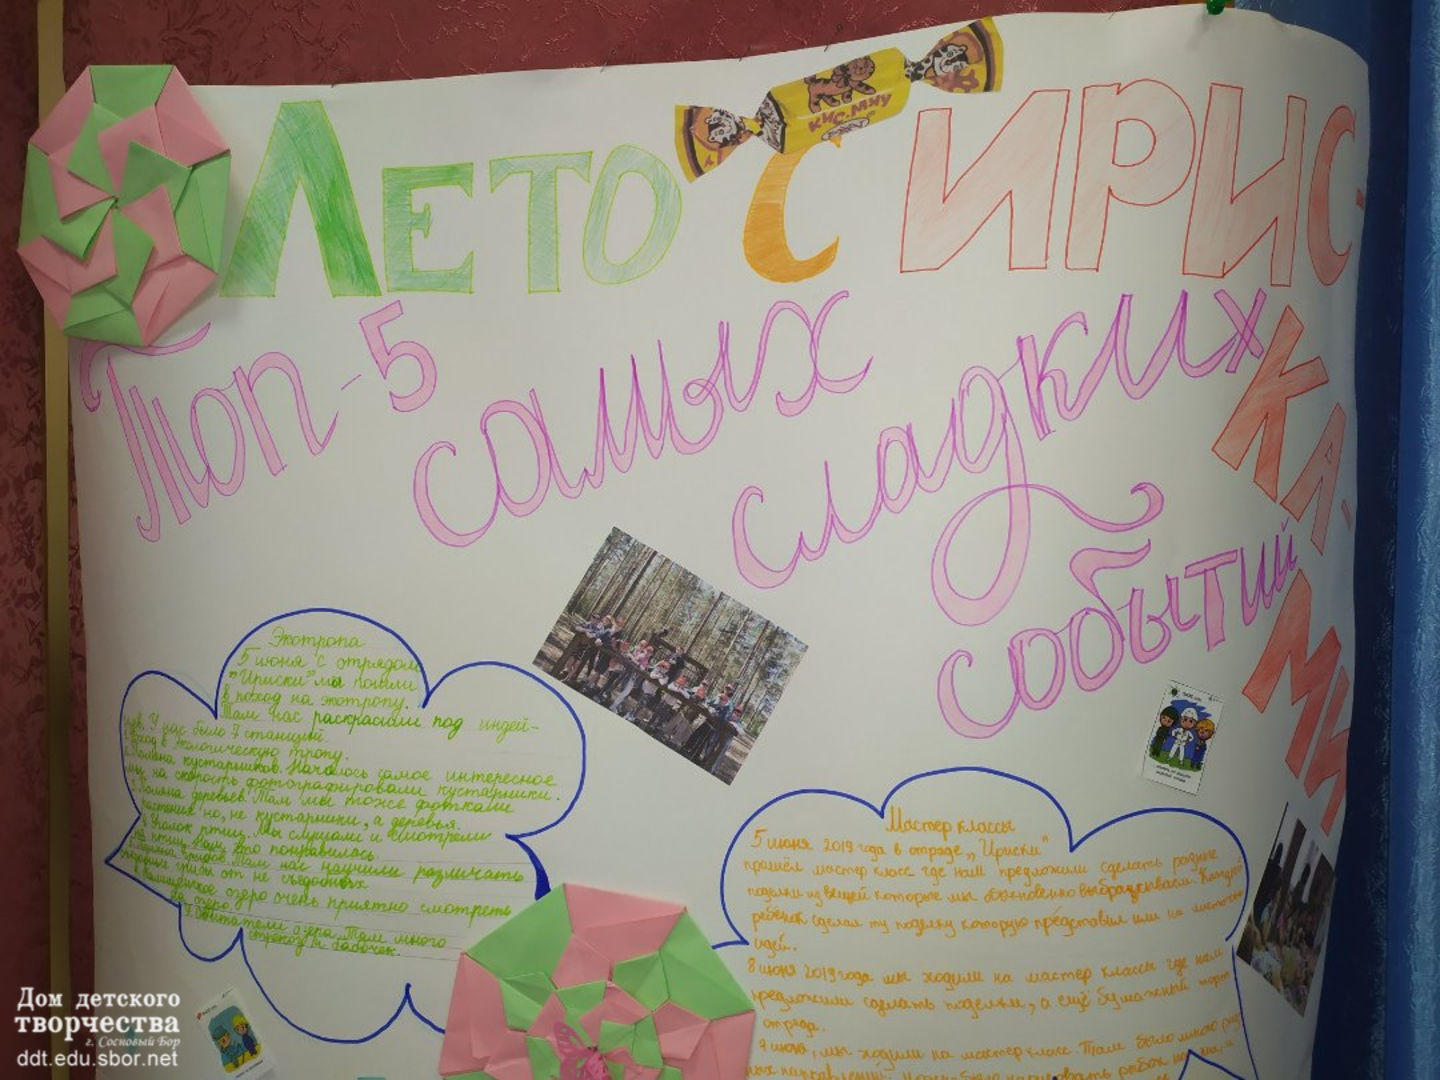 Лето с Ирис-
ка-
ми
КИС.МЯУ
Топ-5 самых сладких
событий
Экотропа
5 июня с отрядом
"Ириски" мы пошли
в поход на экотропу.
Там нас раскрасили под индей-
цев. У нас было 7 станций
Вход в экологическую тропу.
Поляна кустарников. Началось самое интересное
мы на скорость фотографировали кустарники.
Поляна деревьев. Там мы тоже фоткали
растения но, не кустарники, а деревья.
Уголок птиц. Мы слушали и смотрели
на птиц. Нам это понравилось.
Поляна грибов. Там нас научили различать
съедобные грибы от не съедобных
Калищенское озеро очень приятно смотреть
на озеро.
Обитатели озера. Там много
стрекоз и бабочек.
Мастер классы
5 июня 2019 года в отряде „Ириски"
прошёл мастер класс где нам предложили сделать разные
поделки из вещей которые мы обыкновенно выбрасываем. Каждый
ребёнок сделал ту поделку которую представил или на листочке
идей.
8 июня 2019 года мы ходили на мастер классы где нам
предложили сделать поделки, а ещё бумажный торт
отряда.
9 июня, мы ходили на мастер класс. Там было много раз-
ных направлений.
Дом детского
творчества
г. Сосновый Бор
ddt.edu.sbor.net